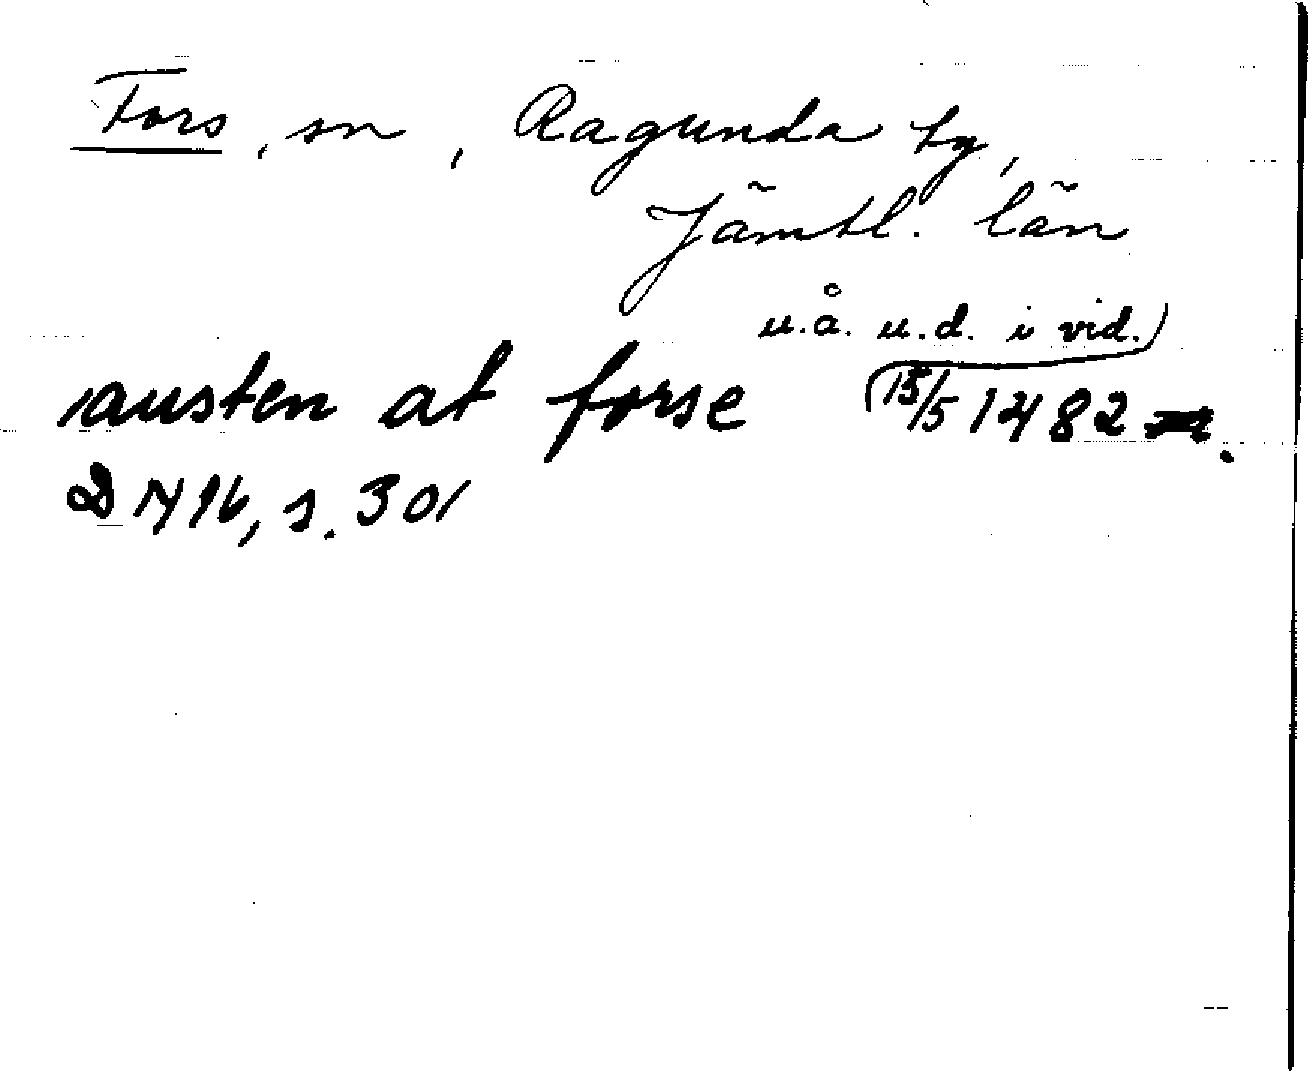 Fors, sn, Ragunda tg,
Jämtl. län
u.å. u.d. i vid.
austen at forse (15/5 1482.
DN 16, s. 301